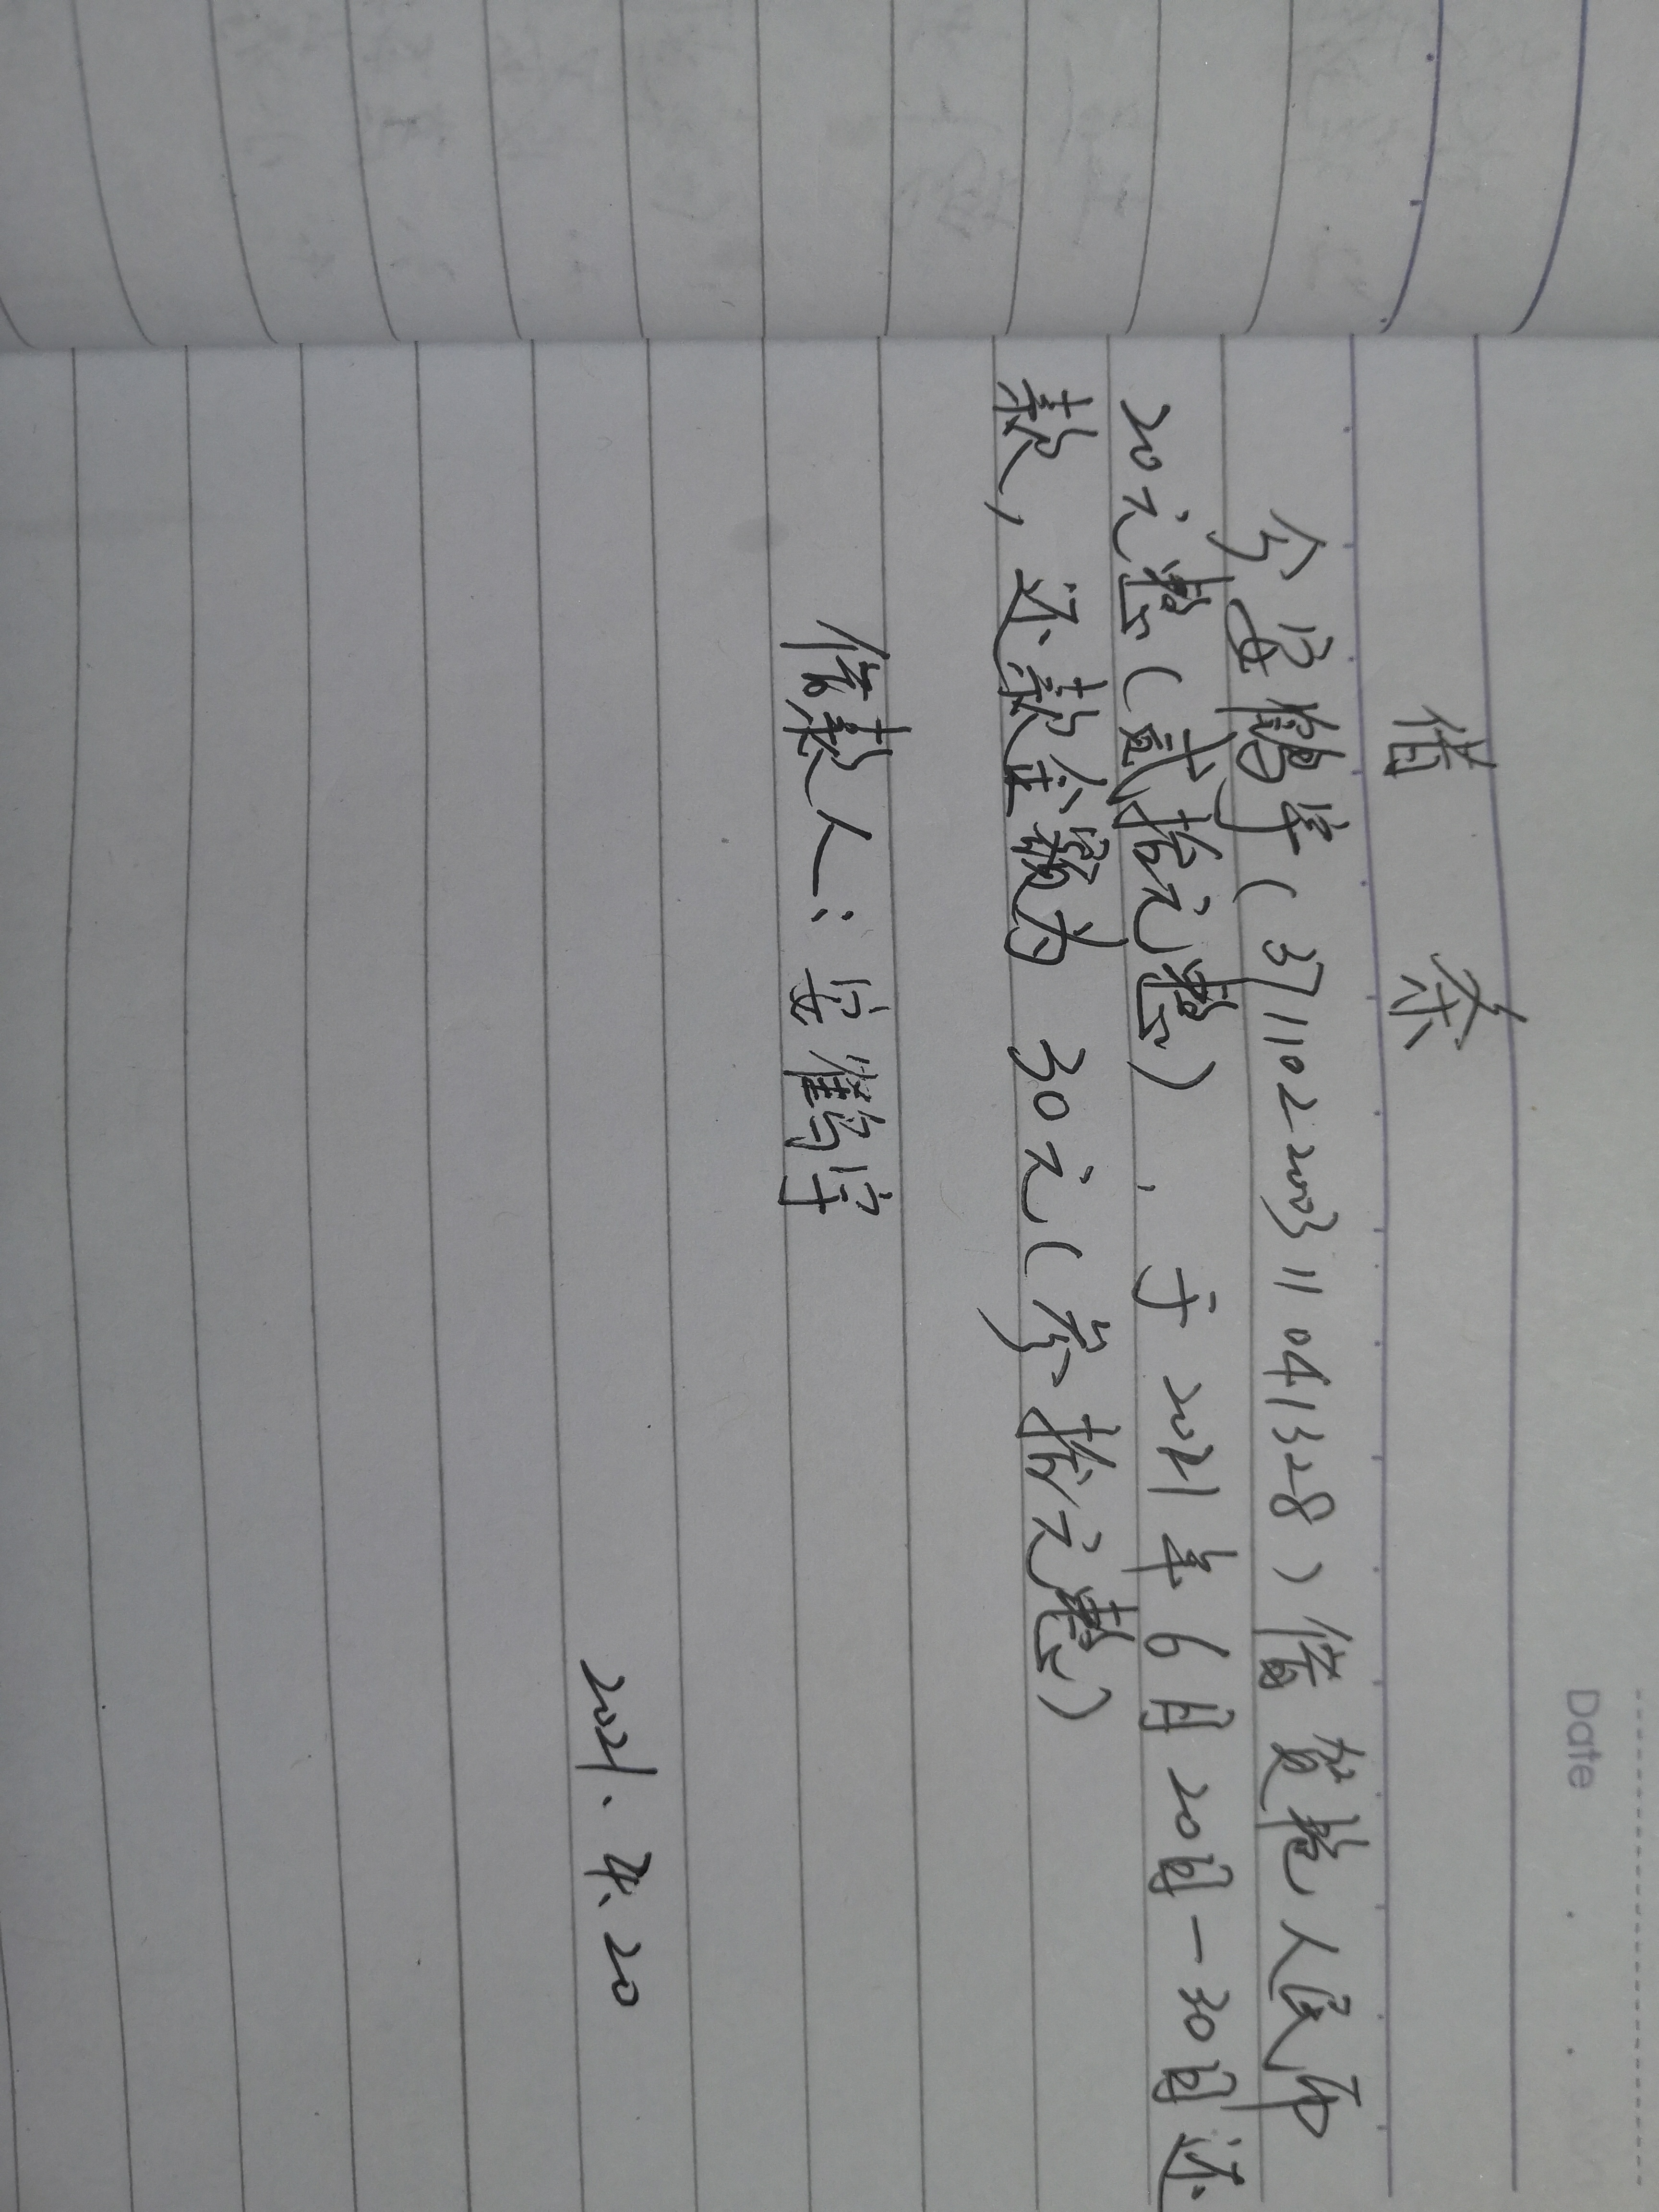 Date
借 条
今安鹤宇(371102200311041328)借贺艳人民币
20元整(贰拾元整),于2021年6月20日—30日还
款,还款金额为 30元(叁拾元整)
借款人:安鹤宇
2021.4.20